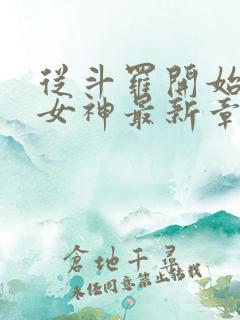 從斗羅開始
女神最新章
倉地千尋
未经同意禁止转载